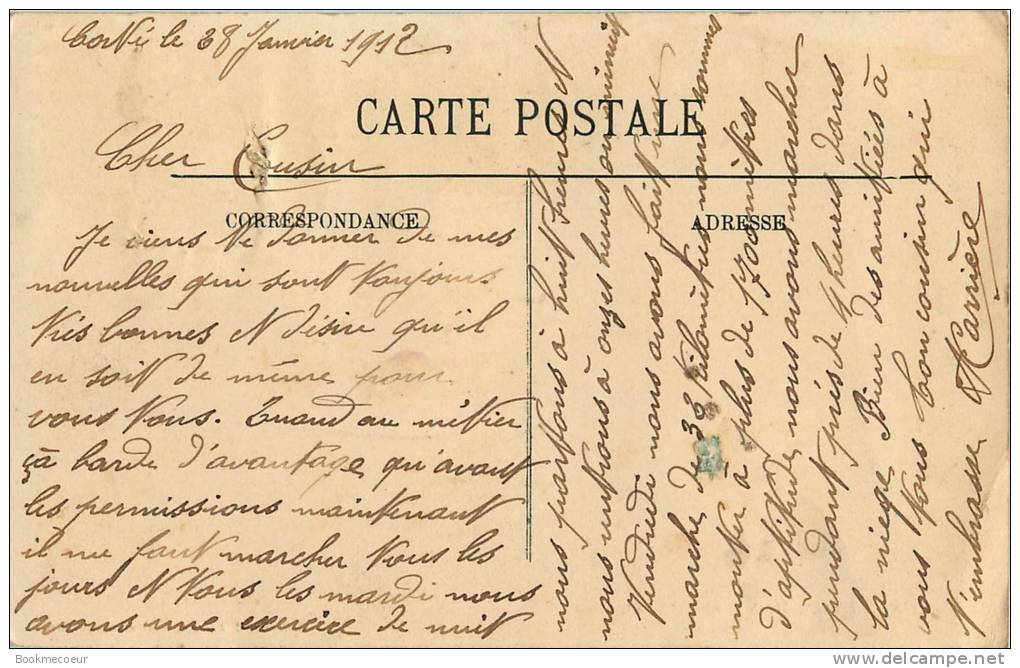 le 28 Janvier 1912
CARTE POSTALE
Cher Cousin
CORRESPONDANCE
ADRESSE
Je viens te donner de mes
nouvelles qui sont toujours
très bonnes et désire qu'il
en soit de même pour
vous tous. Quand au métier
çà barde d'avantage qu'avant
les permissions maintenant
il nu faut marcher tous les
jours et tous les mardi nous
avons une exercice de nuit
nous partons à huit heures et
nous rentrons à onzes heures ou minuit
Vendredi nous avons fait une
marche de 33 kilomètres nous sommes
monter à plus de 1700 mètres
d'aptitude, nous avons marcher
pendant près de 4 heures dans
la niege Bien des amitiées à
vous tous bon cousin qui
t'embrasse Carrière
Bookmecoeur
delcampe.net